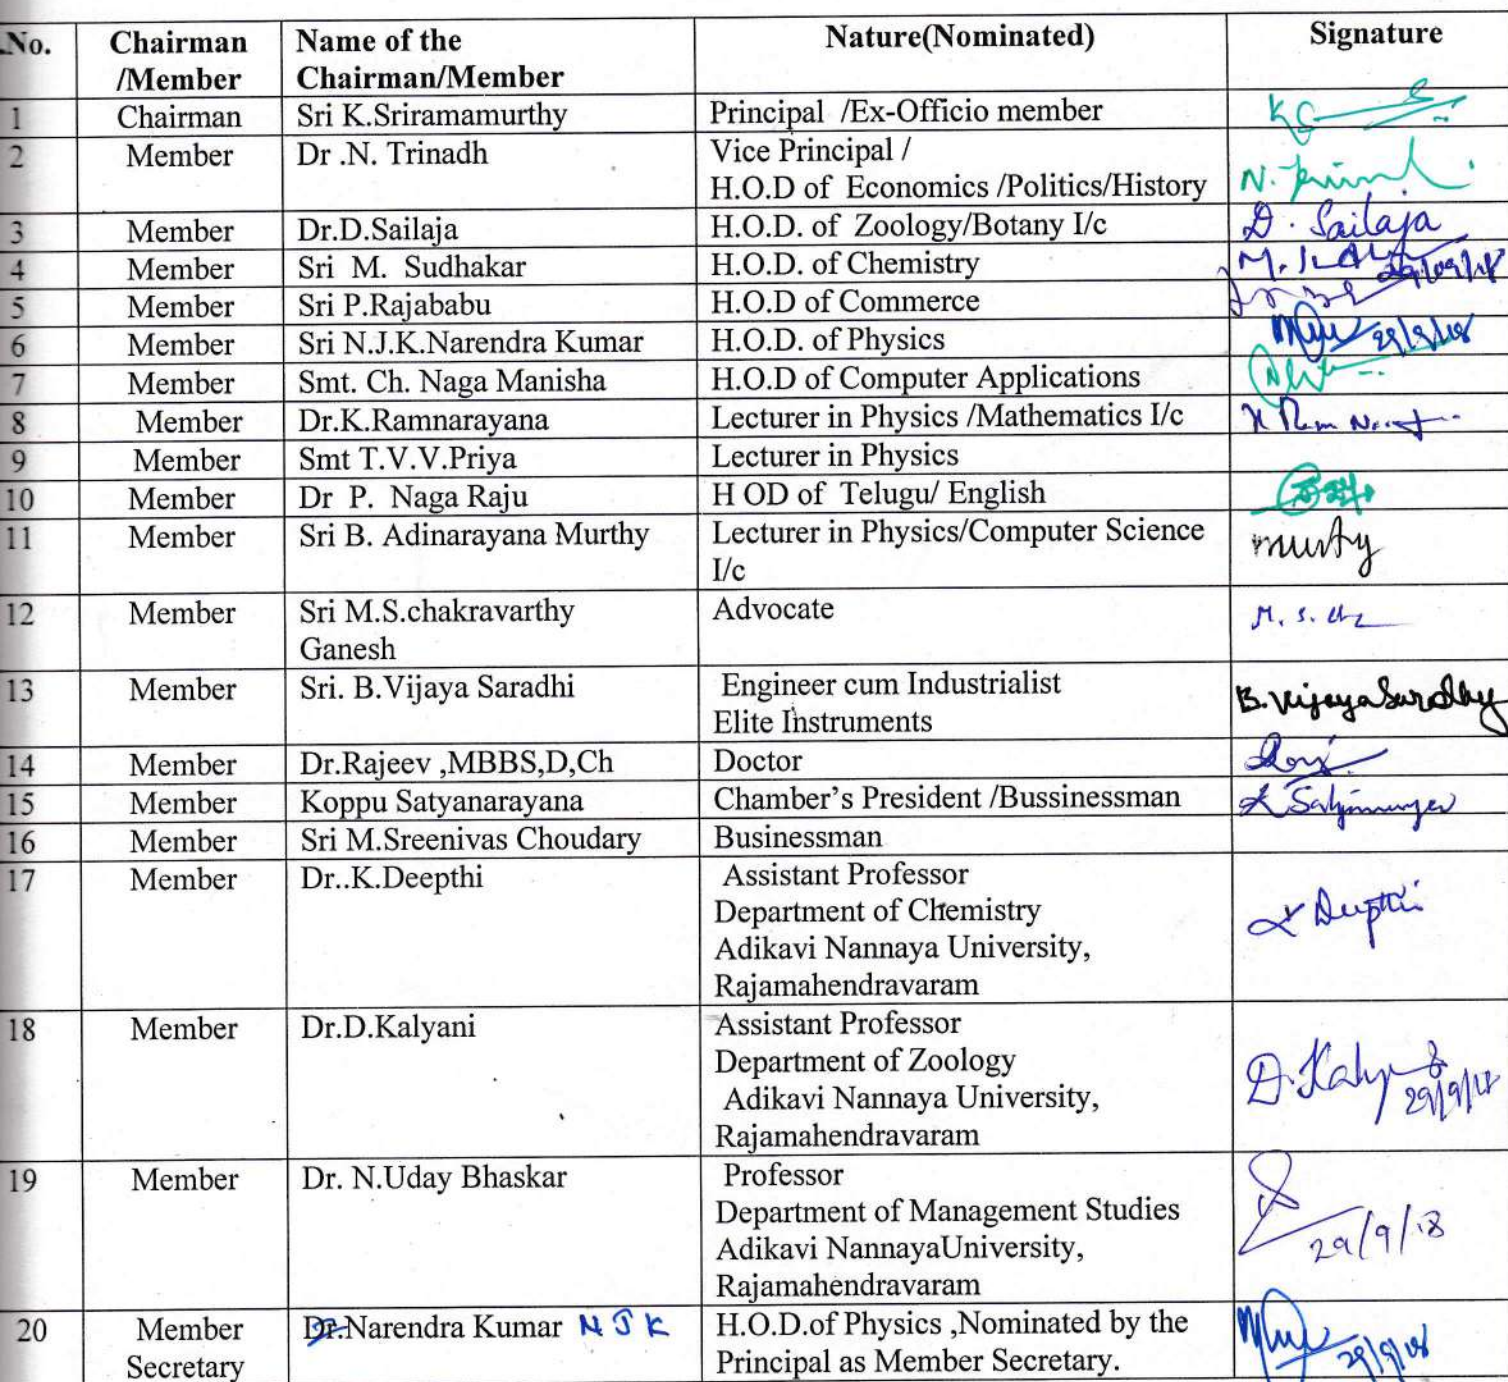 .No. Chairman Name of the Nature(Nominated) Signature
/Member Chairman/Member
1 Chairman Sri K.Sriramamurthy Principal /Ex-Officio member
2 Member Dr .N. Trinadh Vice Principal /
H.O.D of Economics /Politics/History
3 Member Dr.D.Sailaja H.O.D. of Zoology/Botany I/c D. Sailaja
4 Member Sri M. Sudhakar H.O.D. of Chemistry 29/09/18
5 Member Sri P.Rajababu H.O.D of Commerce
6 Member Sri N.J.K.Narendra Kumar H.O.D. of Physics 29/9/18
7 Member Smt. Ch. Naga Manisha H.O.D of Computer Applications
8 Member Dr.K.Ramnarayana Lecturer in Physics /Mathematics I/c
9 Member Smt T.V.V.Priya Lecturer in Physics
10 Member Dr P. Naga Raju H OD of Telugu/ English
11 Member Sri B. Adinarayana Murthy Lecturer in Physics/Computer Science murty
I/c
12 Member Sri M.S.chakravarthy Advocate M. S. Ch
Ganesh
13 Member Sri. B.Vijaya Saradhi Engineer cum Industrialist B. Vijaya Saradhy
Elite Instruments
14 Member Dr.Rajeev ,MBBS,D,Ch Doctor
15 Member Koppu Satyanarayana Chamber's President /Bussinessman
16 Member Sri M.Sreenivas Choudary Businessman
17 Member Dr..K.Deepthi Assistant Professor K Deepthi
Department of Chemistry
Adikavi Nannaya University,
Rajamahendravaram
18 Member Dr.D.Kalyani Assistant Professor
Department of Zoology D. Kalyani
Adikavi Nannaya University, 29/9/18
Rajamahendravaram
19 Member Dr. N.Uday Bhaskar Professor
Department of Management Studies
Adikavi NannayaUniversity, 29/9/18
Rajamahendravaram
20 Member Dr.Narendra Kumar N J K H.O.D.of Physics ,Nominated by the
Secretary Principal as Member Secretary. 29/9/18